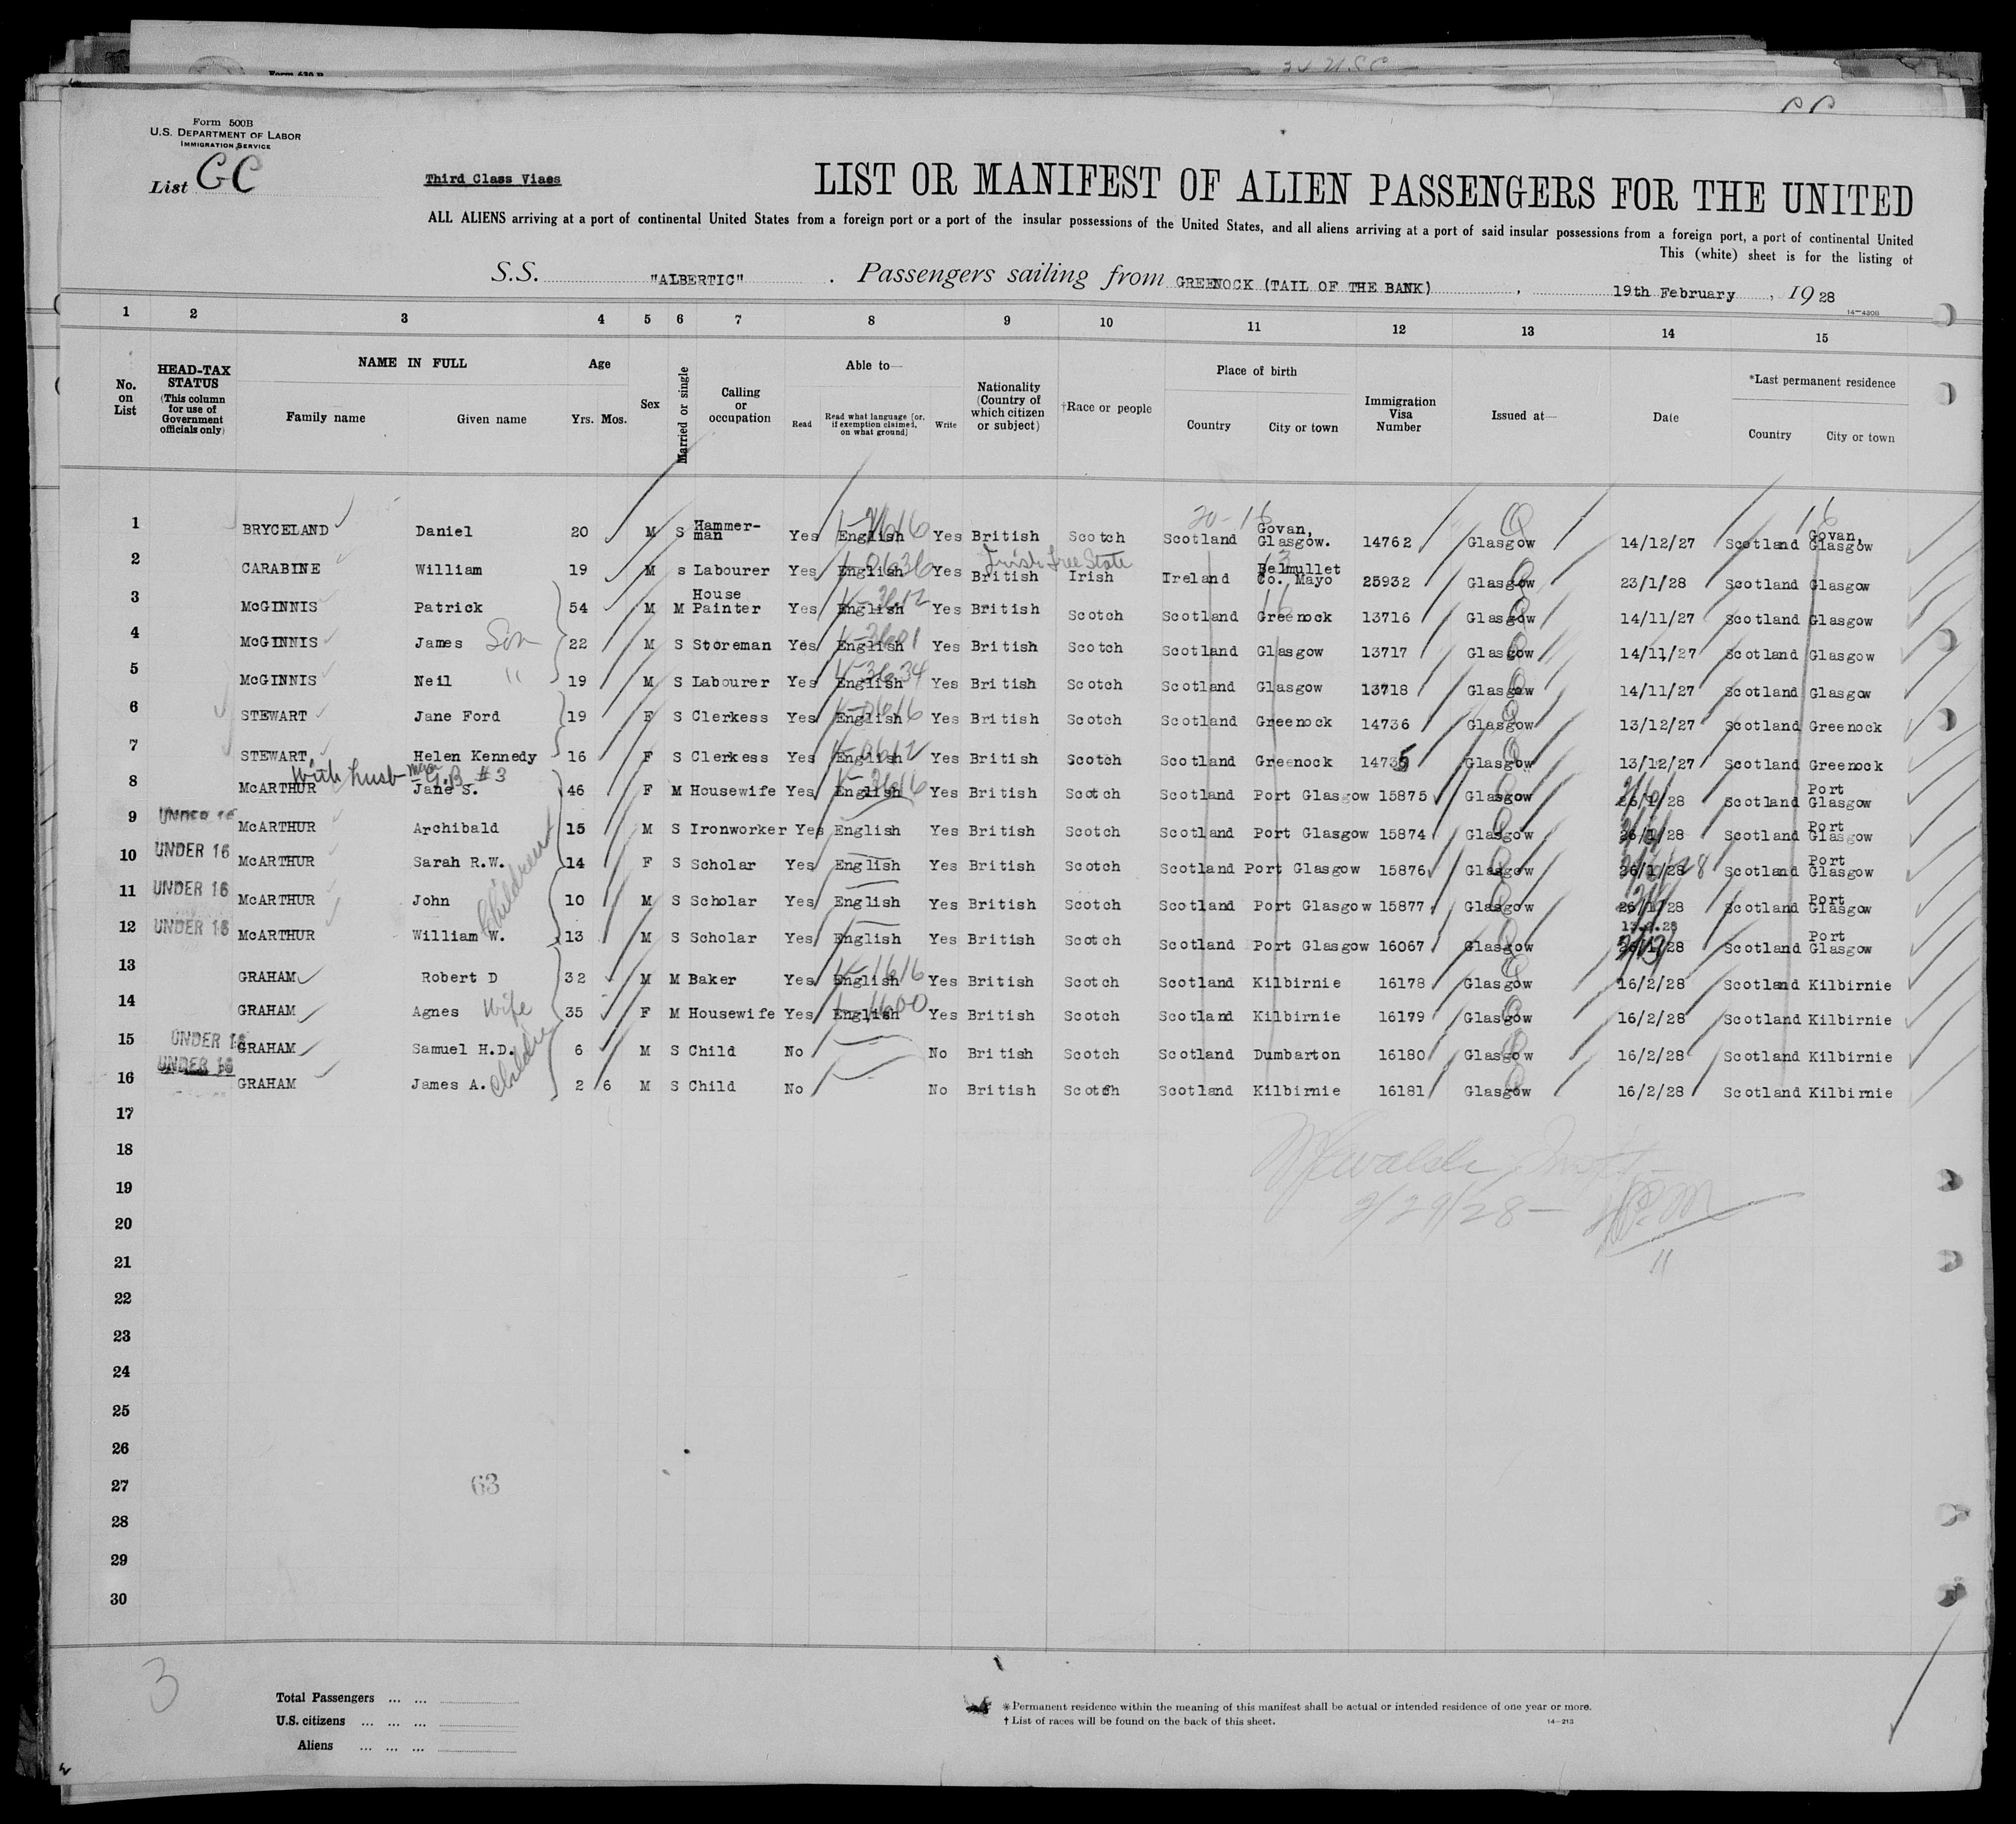 Form 500B
U.S. DEPARTMENT OF LABOR
IMMIGRATION SERVICE
List GC
Third Class Viaes
LIST OR MANIFEST OF ALIEN PASSENGERS FOR THE UNITED
ALL ALIENS arriving at a port of continental United States from a foreign port or a port of the insular possessions of the United States, and all aliens arriving at a port of said insular possessions from a foreign port, a port of continental United
This (white) sheet is for the listing of
S.S. "ALBERTIC" . Passengers sailing from GREENOCK (TAIL OF THE BANK) , 19th February , 1928
14-430B
1 2 3 4 5 6 7 8 9 10 11 12 13 14 15
No. on List
HEAD-TAX STATUS (This column for use of Government officials only)
NAME IN FULL
Family name Given name
Age
Yrs. Mos.
Sex
Married or single
Calling or occupation
Able to—
Read Read what language [or, if exemption claimed, on what ground] Write
Nationality (Country of which citizen or subject)
†Race or people
Place of birth
Country City or town
Immigration Visa Number
Issued at—
Date
*Last permanent residence
Country City or town
1 BRYCELAND Daniel 20 M S Hammer-man Yes English Yes British Scotch Scotland Govan, Glasgow. 14762 Glasgow 14/12/27 Scotland Govan, Glasgow
2 CARABINE William 19 M s Labourer Yes English Yes British Irish Free State Irish Ireland Belmullet Co. Mayo 25932 Glasgow 23/1/28 Scotland Glasgow
3 McGINNIS Patrick 54 M M House Painter Yes English Yes British Scotch Scotland Greenock 13716 Glasgow 14/11/27 Scotland Glasgow
4 McGINNIS James Son 22 M S Storeman Yes English Yes British Scotch Scotland Glasgow 13717 Glasgow 14/11/27 Scotland Glasgow
5 McGINNIS Neil " 19 M S Labourer Yes English Yes British Scotch Scotland Glasgow 13718 Glasgow 14/11/27 Scotland Glasgow
6 STEWART Jane Ford 19 F S Clerkess Yes English Yes British Scotch Scotland Greenock 14736 Glasgow 13/12/27 Scotland Greenock
7 STEWART Helen Kennedy 16 F S Clerkess Yes English Yes British Scotch Scotland Greenock 14735 Glasgow 13/12/27 Scotland Greenock
With husb G.B #3
8 McARTHUR Jane S. 46 F M Housewife Yes English Yes British Scotch Scotland Port Glasgow 15875 Glasgow 26/1/28 Scotland Port Glasgow
9 UNDER 16 McARTHUR Archibald 15 M S Ironworker Yes English Yes British Scotch Scotland Port Glasgow 15874 Glasgow 26/1/28 Scotland Port Glasgow
10 UNDER 16 McARTHUR Sarah R.W. Children 14 F S Scholar Yes English Yes British Scotch Scotland Port Glasgow 15876 Glasgow 26/1/28 Scotland Port Glasgow
11 UNDER 16 McARTHUR John 10 M S Scholar Yes English Yes British Scotch Scotland Port Glasgow 15877 Glasgow 26/1/28 Scotland Port Glasgow
12 UNDER 16 McARTHUR William W. 13 M S Scholar Yes English Yes British Scotch Scotland Port Glasgow 16067 Glasgow 13.2.28 Scotland Port Glasgow
13 GRAHAM Robert D 32 M M Baker Yes English Yes British Scotch Scotland Kilbirnie 16178 Glasgow 16/2/28 Scotland Kilbirnie
14 GRAHAM Agnes Wife 35 F M Housewife Yes English Yes British Scotch Scotland Kilbirnie 16179 Glasgow 16/2/28 Scotland Kilbirnie
15 UNDER 16 GRAHAM Samuel H.D. Children 6 M S Child No No British Scotch Scotland Dumbarton 16180 Glasgow 16/2/28 Scotland Kilbirnie
16 UNDER 16 GRAHAM James A. 2 6 M S Child No No British Scotch Scotland Kilbirnie 16181 Glasgow 16/2/28 Scotland Kilbirnie
17
18
19
2/29/28
20
21
11
22
23
24
25
26
27
63
28
29
30
3
Total Passengers ... ...
U.S. citizens ... ... ...
Aliens ... ... ...
* Permanent residence within the meaning of this manifest shall be actual or intended residence of one year or more.
† List of races will be found on the back of this sheet.
14-213